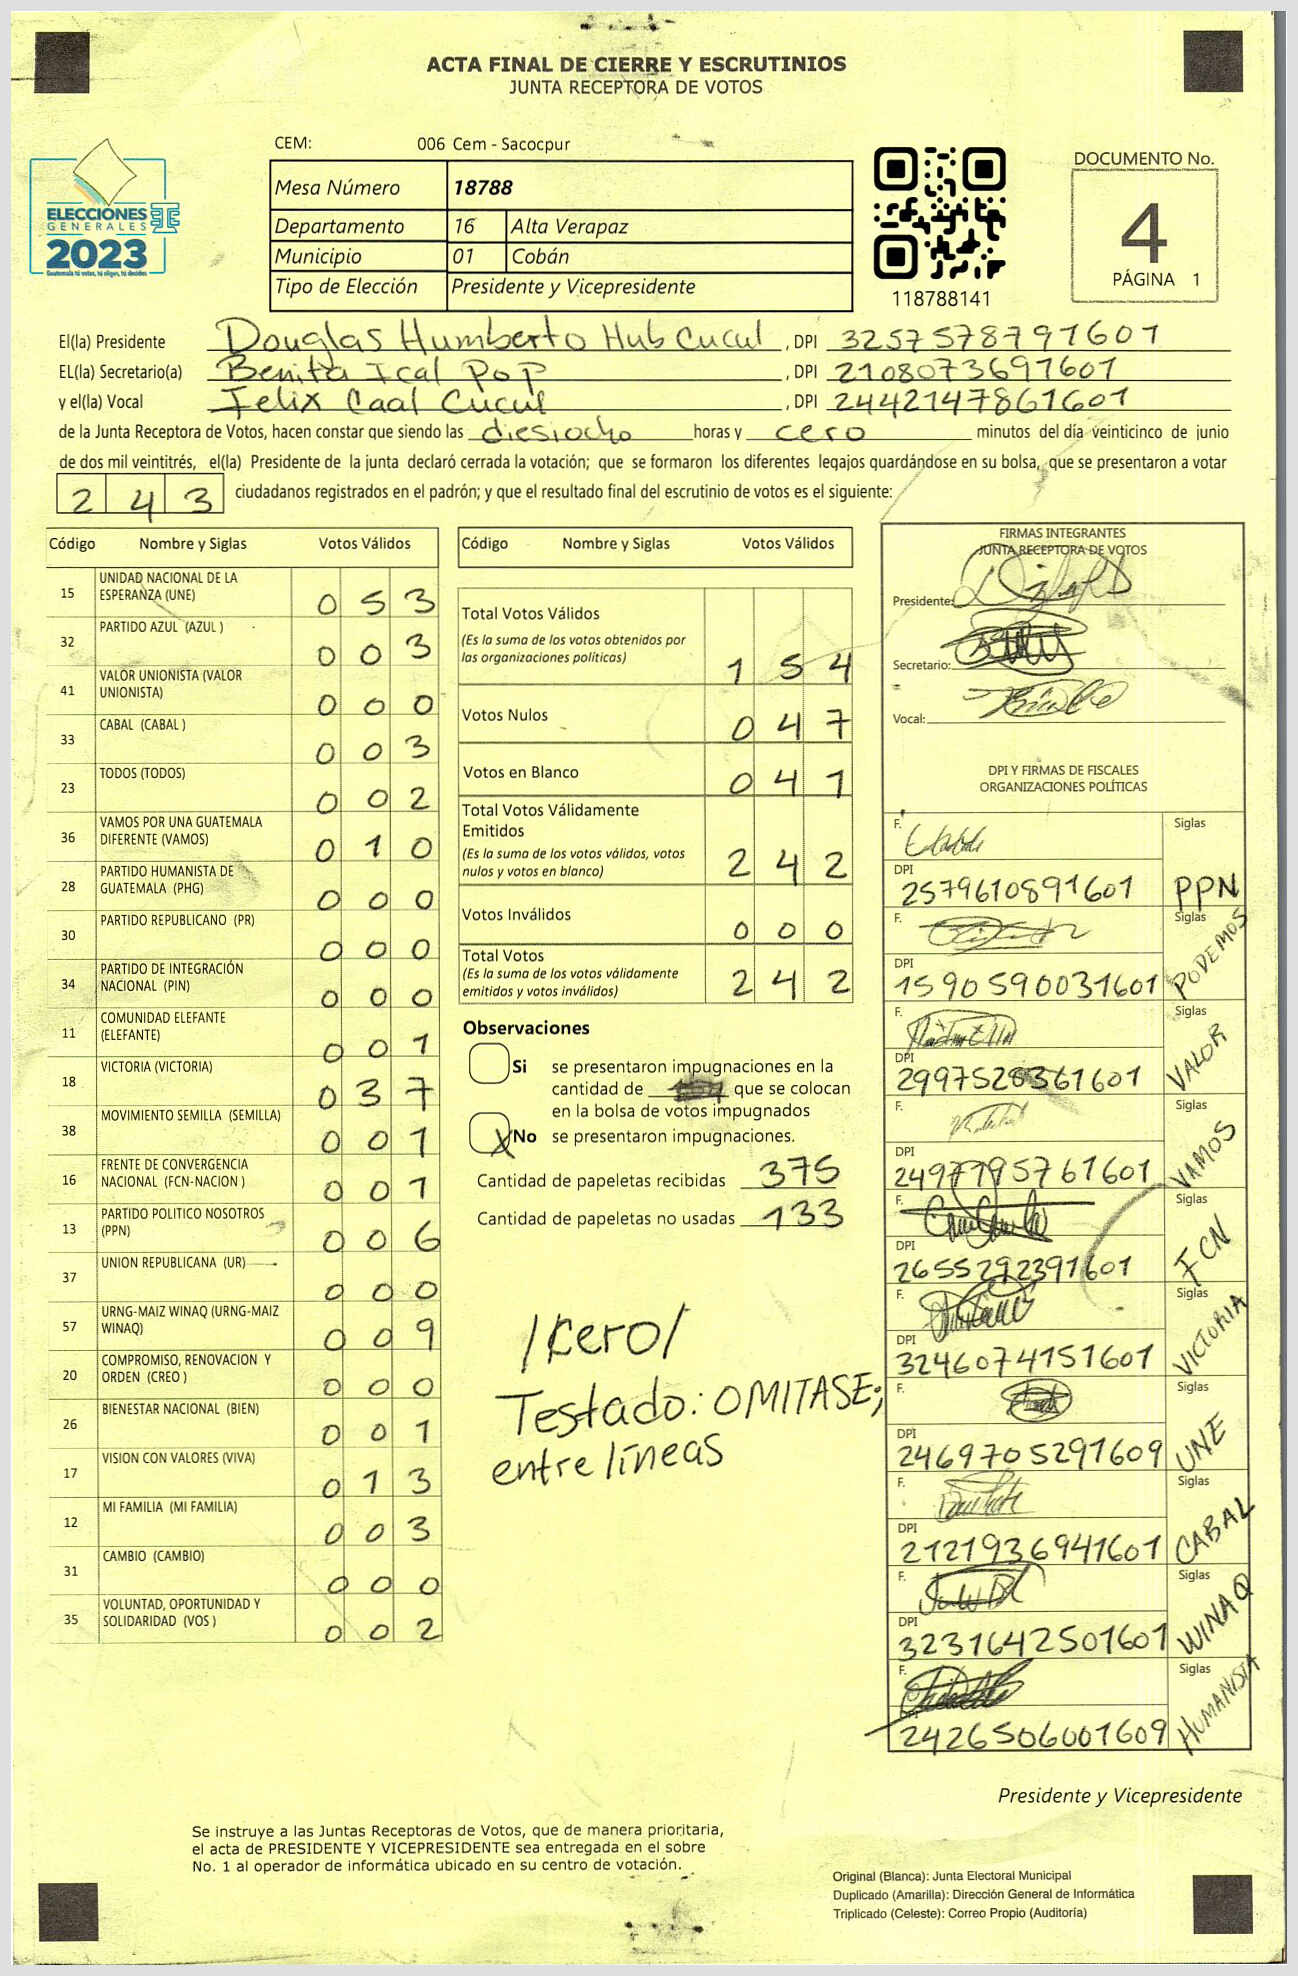 ACTA FINAL DE CIERRE Y ESCRUTINIOS
JUNTA RECEPTORA DE VOTOS
CEM: 006 Cem - Sacocpur
ELECCIONES
GENERALES
2023
Guatemala tú votas, tú eliges, tú decides
Mesa Número 18788
Departamento 16 Alta Verapaz
Municipio 01 Cobán
Tipo de Elección Presidente y Vicepresidente
118788141
DOCUMENTO No.
4
PÁGINA 1
El(la) Presidente Douglas Humberto Hub Cucul, DPI 3257578791601
EL(la) Secretario(a) Benita Ical Pop, DPI 2108073691601
y el(la) Vocal Felix Caal Cucul, DPI 2442147861601
de la Junta Receptora de Votos, hacen constar que siendo las diesiocho horas y cero minutos del día veinticinco de junio
de dos mil veintitrés, el(la) Presidente de la junta declaró cerrada la votación; que se formaron los diferentes legajos guardándose en su bolsa, que se presentaron a votar
243 ciudadanos registrados en el padrón; y que el resultado final del escrutinio de votos es el siguiente:
Código Nombre y Siglas Votos Válidos
15 UNIDAD NACIONAL DE LA ESPERANZA (UNE) 053
32 PARTIDO AZUL (AZUL ) 003
41 VALOR UNIONISTA (VALOR UNIONISTA) 000
33 CABAL (CABAL ) 003
23 TODOS (TODOS) 002
36 VAMOS POR UNA GUATEMALA DIFERENTE (VAMOS) 010
28 PARTIDO HUMANISTA DE GUATEMALA (PHG) 000
30 PARTIDO REPUBLICANO (PR) 000
34 PARTIDO DE INTEGRACIÓN NACIONAL (PIN) 000
11 COMUNIDAD ELEFANTE (ELEFANTE) 001
18 VICTORIA (VICTORIA) 037
38 MOVIMIENTO SEMILLA (SEMILLA) 001
16 FRENTE DE CONVERGENCIA NACIONAL (FCN-NACION ) 001
13 PARTIDO POLITICO NOSOTROS (PPN) 006
37 UNION REPUBLICANA (UR) 000
57 URNG-MAIZ WINAQ (URNG-MAIZ WINAQ) 009
20 COMPROMISO, RENOVACION Y ORDEN (CREO ) 000
26 BIENESTAR NACIONAL (BIEN) 001
17 VISION CON VALORES (VIVA) 013
12 MI FAMILIA (MI FAMILIA) 003
31 CAMBIO (CAMBIO) 000
35 VOLUNTAD, OPORTUNIDAD Y SOLIDARIDAD (VOS ) 002
Código Nombre y Siglas Votos Válidos
Total Votos Válidos 154
(Es la suma de los votos obtenidos por
las organizaciones políticas)
Votos Nulos 047
Votos en Blanco 041
Total Votos Válidamente
Emitidos 242
(Es la suma de los votos válidos, votos
nulos y votos en blanco)
Votos Inválidos 000
Total Votos 242
(Es la suma de los votos válidamente
emitidos y votos inválidos)
Observaciones
Si se presentaron impugnaciones en la
cantidad de que se colocan
en la bolsa de votos impugnados
X No se presentaron impugnaciones.
Cantidad de papeletas recibidas 375
Cantidad de papeletas no usadas 133
/cero/
Testado: OMITASE;
entre líneas
FIRMAS INTEGRANTES
JUNTA RECEPTORA DE VOTOS
Presidente:
Secretario:
Vocal:
DPI Y FIRMAS DE FISCALES
ORGANIZACIONES POLÍTICAS
F. Siglas
DPI 2579610891601 PPN
F. Siglas
DPI 1590590031601 PODEMOS
F. Siglas
DPI 2997528361601 VALOR
F. Siglas
DPI 2497795761601 VAMOS
F. Siglas
DPI 2655292391601 FCN
F. Siglas
DPI 3246074151601 VICTORIA
F. Siglas
DPI 2469705291609 UNE
F. Siglas
DPI 2121936941601 CABAL
F. Siglas
DPI 3231642501601 WINAQ
F. Siglas
DPI 2426506001609 HUMANISTA
Presidente y Vicepresidente
Se instruye a las Juntas Receptoras de Votos, que de manera prioritaria,
el acta de PRESIDENTE Y VICEPRESIDENTE sea entregada en el sobre
No. 1 al operador de informática ubicado en su centro de votación.
Original (Blanca): Junta Electoral Municipal
Duplicado (Amarilla): Dirección General de Informática
Triplicado (Celeste): Correo Propio (Auditoría)